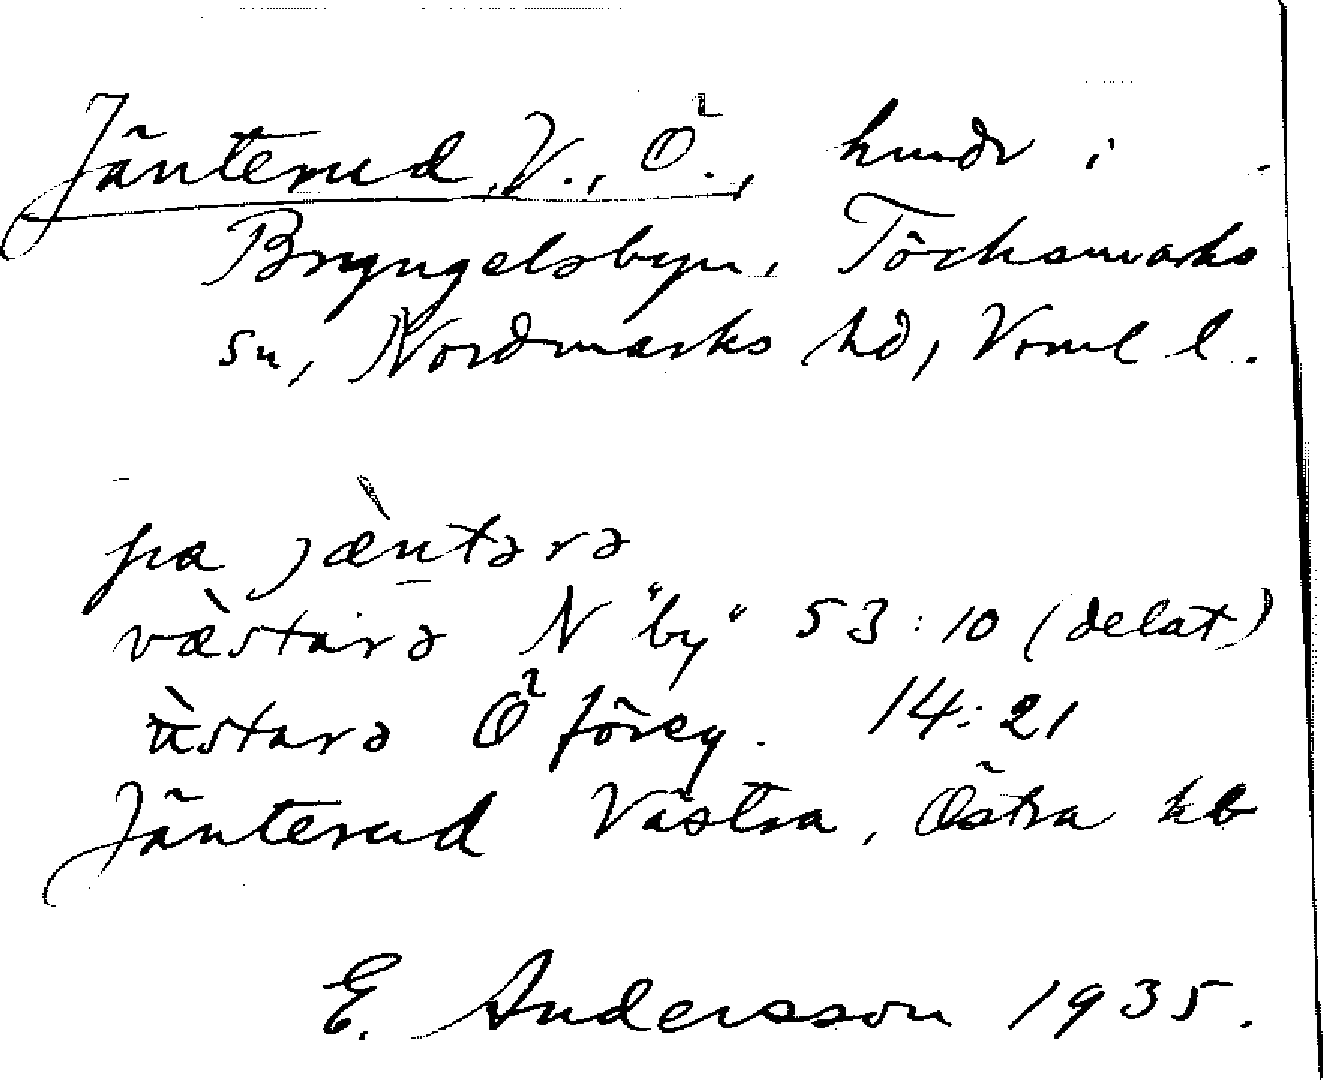 Jänterud, V., Ö., hmdr i
Bryngelsbyn, Töcksmarks
sn, Nordmarks hd, Vrml l.
pɑ jæ̀ntərə
væ̀stɑrə N "by" 53:10 (delat)
ùstɑrə Ö föreg. 14:21
Jänterud Västra, Östra kb
E. Andersson 1935.